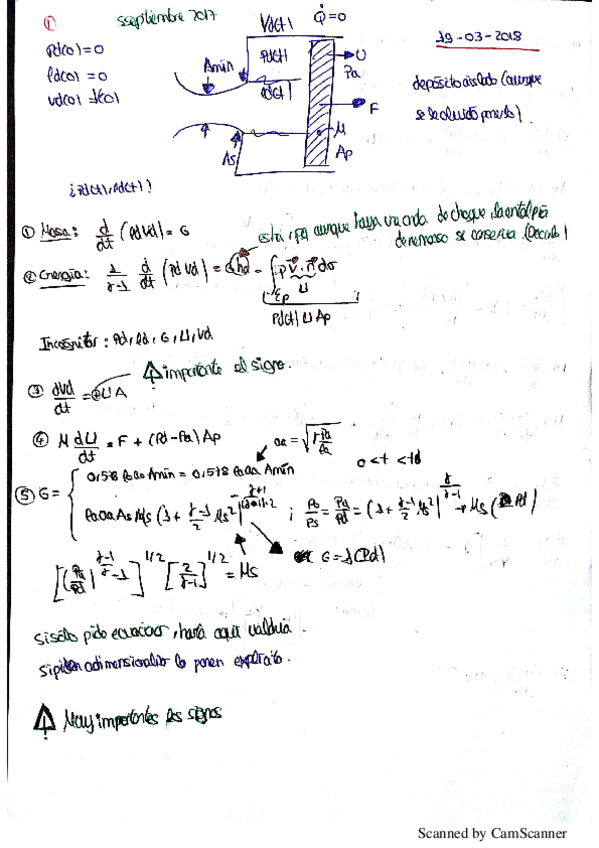 ① septiembre 2017
Vd(t) Q̇=0
19-03-2018
Pd(0)=0
ρd(0)=0
Vd(0)
Amin
Pd(t)
ρd(t)
U
Pa
F
M
As
Ap
depósito aislado (aunque
se le olvidó ponerlo)
¿Pd(t), ρd(t)?
① Masa: d/dt (ρd Vd) = G
está, pq aunque haya una onda de choque, la entalpía
de remanso se conserva.
② Energía: 1/(γ-1) d/dt (Pd Vd) = G h₀ - ∫ p v̄·n̄ dσ
Σp U
Pd(t) U Ap
Incógnitas: Pd, ρd, G, U, Vd
⚠ importante el signo.
③ dVd/dt = ⊕ U A
④ M dU/dt = F + (Pd-Pa) Ap
aa = √(γ Pa/ρa)
0<t<td
⑤ G = { 0,578 ρ₀a₀ Amin = 0,578 ρa aa Amin
ρa aa As Ms (1 + (γ-1)/2 Ms²)^(-(γ+1)/(2(γ-1))) ; P₀/Ps = Pa/Pd = (1 + (γ-1)/2 Ms²)^(γ/(γ-1)) → Ms (Pd)
[(Pa/Pd)^((γ-1)/γ) - 1]^(1/2) [2/(γ-1)]^(1/2) = Ms
G = f(Pd)
si sólo pide ecuaciones, hasta aquí valdría.
si piden adimensionalizar lo ponen explícito.
⚠ Muy importantes los signos
Scanned by CamScanner